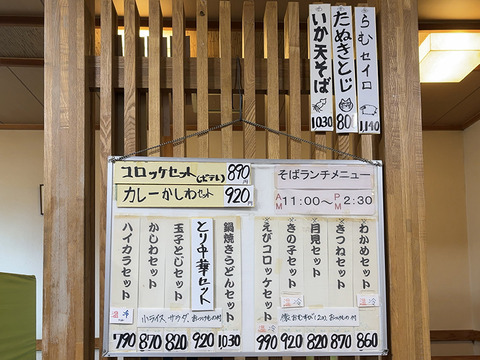 らむセイロ
1,140
たぬきとじ
80
いか天そば
1030
コロッケセット(ポテト) 890円
カレーかしわセット 920円
そばランチメニュー
AM 11:00〜PM 2:30
わかめセット
きつねセット
月見セット
きの子セット
えびコロッケセット
鍋焼きうどんセット
とり中華セット
玉子とじセット
かしわセット
ハイカラセット
温 冷
温 冷
温 冷
小ライス、サラダ、おつけもの付
790 870 820 920 1,030 990 920 820 870 860